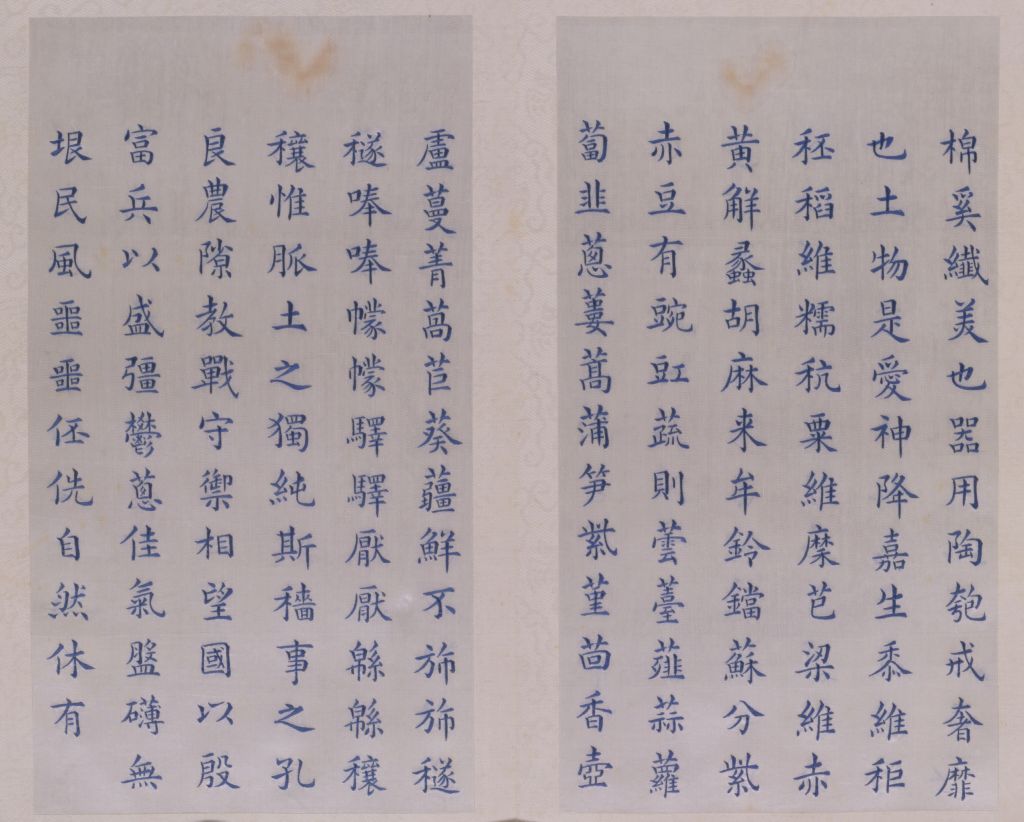 棉奚纖美也器用陶匏戒奢靡
也土物是愛神降嘉生黍維秬
秠稻維糯秔粟維穈芑粱維赤
黄觧蠡胡麻来牟鈴鐺蘇分紫
赤豆有豌豇蔬則蕓薹薤蒜蘿
蔔韭蔥蔞蒿蒲笋紫堇茴香壺
盧蔓菁萵苣葵虇鮮不斾斾穟
穟唪唪幪幪驛驛厭厭緜緜穰
穰惟脈土之獨純斯穡事之孔
良農隙教戰守禦相望國以殷
富兵以盛彊鬱蔥佳氣盤礴無
垠民風噩噩伾侁自然休有